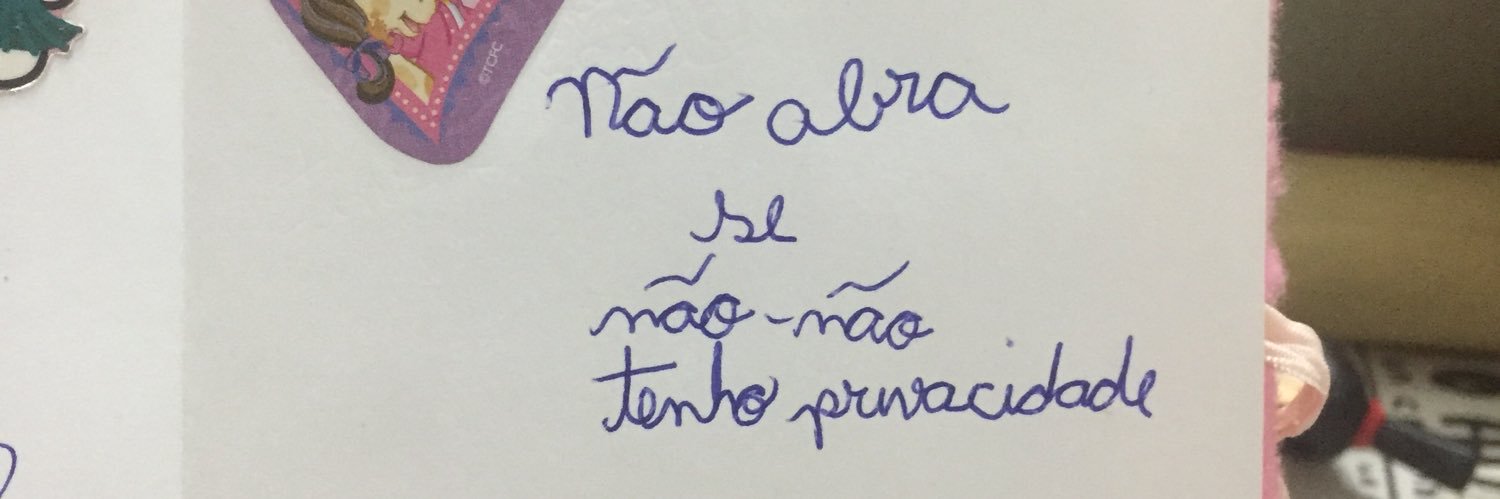 ©TCFC
Não abra
se
não-não
tenho privacidade